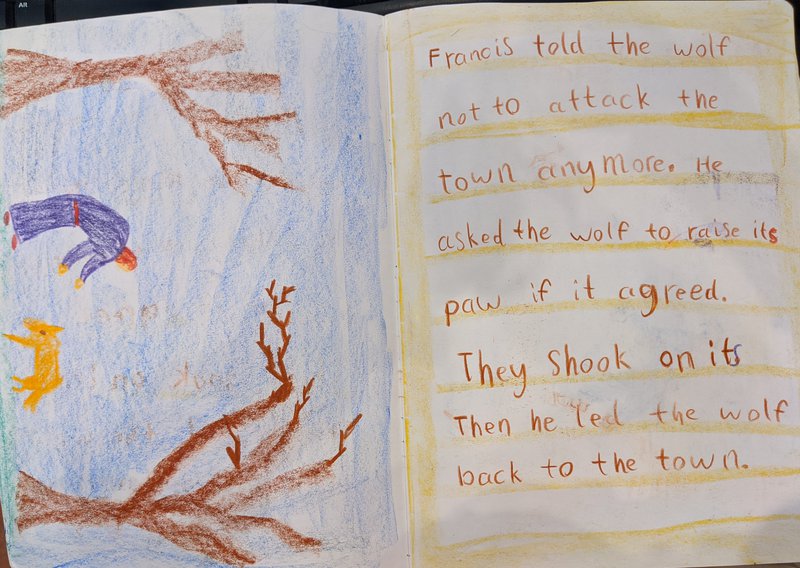 AR
Francis told the wolf
not to attack the
town anymore. He
asked the wolf to raise its
paw if it agreed.
They Shook on its
Then he led the wolf
back to the town.